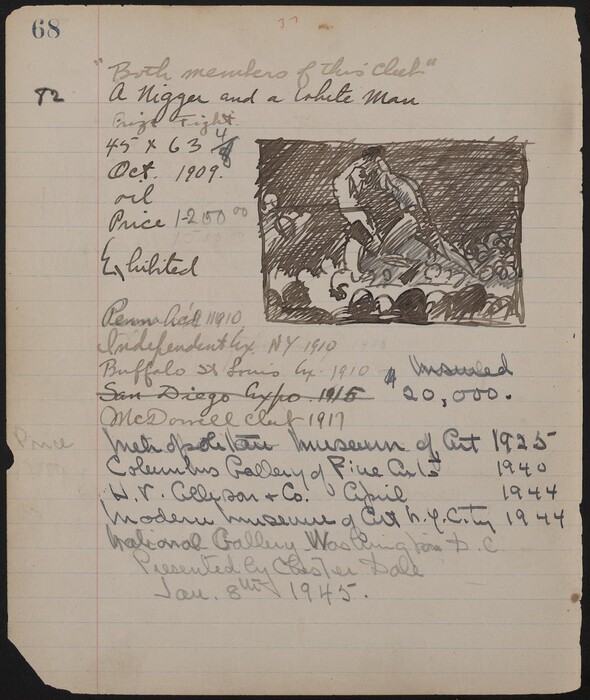 68
37
"Both members of this Club"
82 A Nigger and a White Man
Prize Fight
45 x 63 4/8
Oct. 1909.
oil
Price 1200 00
Exhibited
Penna Acd 1910
Independent Ex NY 1910
Buffalo St Louis Ex. 1910
San Diego Expo 1915
$ Insured
20,000.
McDowell Club 1917
Price
Metropolitan Museum of Art 1925
Columbus Gallery of Fine Arts 1940
H.V. Allison & Co. April 1944
Modern Museum of Art N.Y. City 1944
National Gallery Washington D.C
Presented by Chester Dale
Jan. 8th 1945.